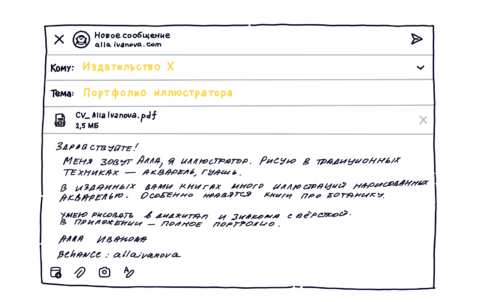 Новое сообщение
alla ivanova.com
Кому: Издательство X
Тема: Портфолио иллюстратора
CV_AllaIvanova.pdf
2,5 МБ
Здравствуйте!
Меня зовут Алла, я иллюстратор. Рисую в традиционных
техниках — акварель, гуашь.
В изданных вами книгах много иллюстраций нарисованных
акварелью. Особенно нравятся книги про ботанику.
Умею рисовать в диджитал и знакома с вёрсткой.
В приложении — полное портфолио.
Алла Иванова
Behance: allaivanova